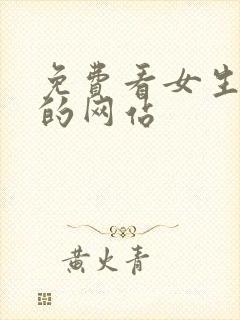 免费看女生
的网站
黄火青